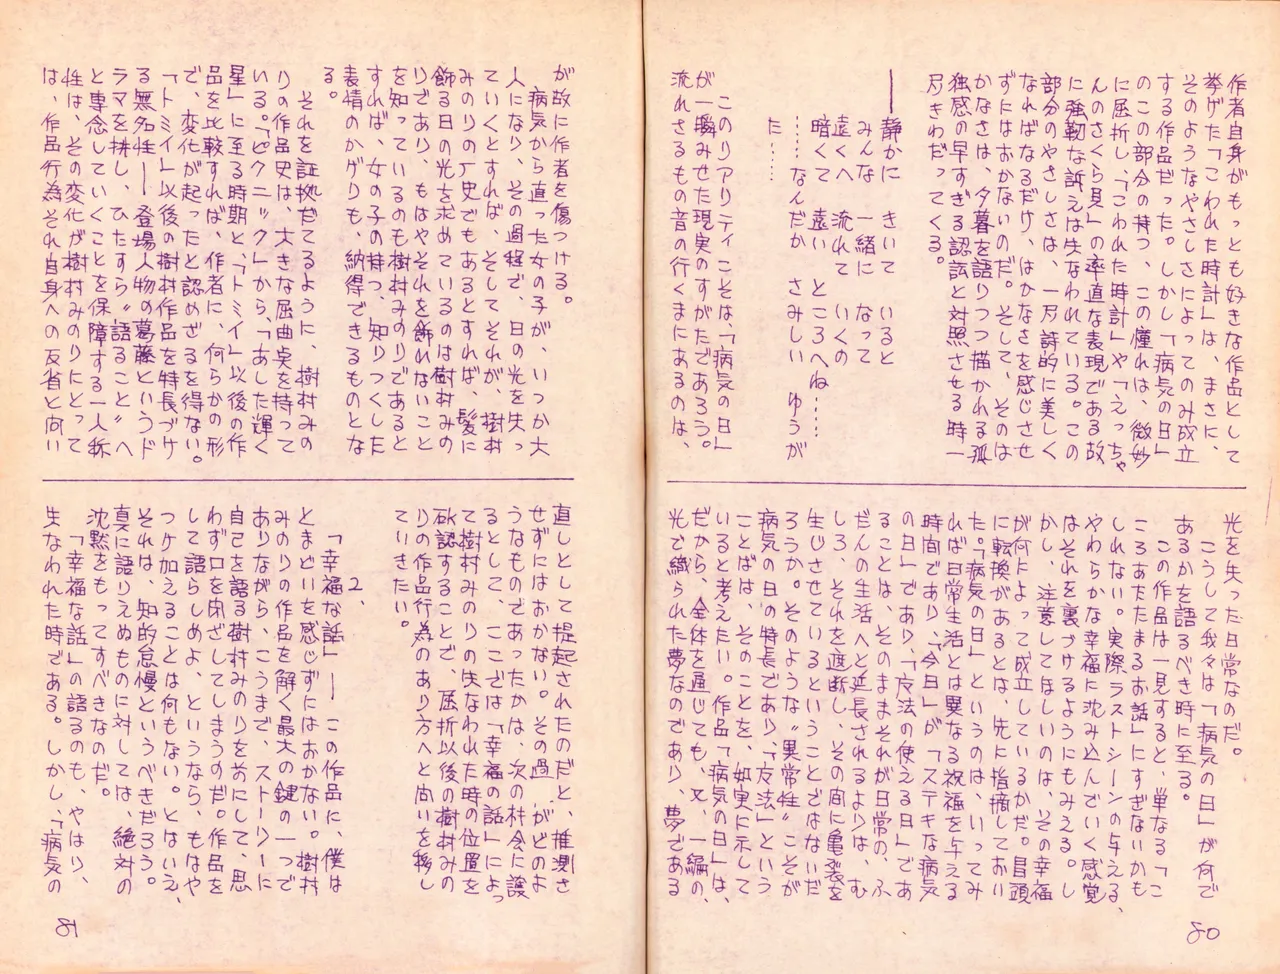 作者自身がもっとも好きな作品として
挙げた「こわれた時計」は、まさに、
そのようなやさしさによってのみ成立
する作品だった。しかし「病気の日」
のこの部分の持つ、この憧れは、微妙
に屈折し、「こわれた時計」や「えっちゃ
んのさくら貝」の率直な表現である故
に強靭な訴えは失なわれている。この
部分のやさしさは、一方詩的に美しく
なればなるだけ、はかなさを感じさせ
ずにはおかないのだ。そして、そのは
かなさは、夕暮を語りつつ描かれる孤
独感の早すぎる認識と対照させる時一
層きわだってくる。
――静かに きいて いると
みんな 一緒に なって
遠くへ 流れて いくの
暗くて 遠い ところへね……
……なんだか さみしい ゆうが
た……
このリアリティこそは、「病気の日」
が一瞬みせた現実のすがたであろう。
流れさるもの音の行くまにあるのは、
光を失った日常なのだ。
こうして我々は「病気の日」が何で
あるかを語るべき時に至る。
この作品は一見すると、単なる「こ
ころあたたまるお話」にすぎないかも
しれない。実際ラストシーンの与える、
やわらかな幸福に沈み込んでいく感覚
はそれを裏づけるようにもみえる。し
かし、注意してほしいのは、その幸福
が何によって成立しているかだ。冒頭
に転換があるとは、先に指摘しておい
た。「病気の日」というのは、いってみ
れば日常生活とは異なる祝福を与える
時間であり、「今日」が「ステキな病気
の日」であり、「魔法の使える日」であ
ることは、そのままそれが日常の、ふ
だんの生活へと延長されるよりは、む
しろ、それを遮断し、その間に亀裂を
生じさせているということではないだ
ろうか。そのような〝異常性〟こそが
病気の日の特長であり、「魔法」という
ことばは、そのことを、如実に示して
いると考えたい。作品「病気の日」は、
だから、全体を通じても、又、一編の、
光で織られた夢なのであり、夢である
80
が故に作者を傷つける。
病気から直った女の子が、いつか大
人になり、その過程で、日の光を失っ
ていくとすれば、そしてそれが、樹村
みのりの歴史でもあるとすれば、髪に
飾る日の光を求めているのは樹村みの
りであり、もはやそれを飾れないこと
を知っているのも樹村みのりであると
すれば、女の子の持つ、知りつくした
表情のかげりも、納得できるものとな
る。
それを証拠だてるように、樹村みの
りの作品史は、大きな屈曲点を持って
いる。「ピクニック」から、「あした輝く
星」に至る時期と、「トミイ」以後の作
品を比較すれば、作者に、何らかの形
で、変化が起ったと認めざるを得ない。
「トミイ」以後の樹村作品を特長づけ
る無名性――登場人物の葛藤というド
ラマを排し、ひたすら〝語ること〟へ
と専念していくことを保障する一人称
性は、その変化が樹村みのりにとって
は、作品行為それ自身への反省と向い
直しとして提起されたのだと、推測さ
せずにはおかない。その過 がどのよ
うなものであったかは、次の機会に譲
るとして、ここでは「幸福な話」によっ
て樹村みのりの失なわれた時の位置を
確認することで、屈折以後の樹村みの
りの作品行為のあり方へと向いを移し
ていきたい。
2、
「幸福な話」――この作品に、僕は
とまどいを感じずにはおかない。樹村
みのりの作品を解く最大の鍵の一つで
ありながら、こうまで、ストーリーに
自己を語る樹村みのりを前にして、思
わず口を閉ざしてしまうのだ。作品を
して語らしめよ、というなら、もはや
つけ加えることは何もない。とはいえ、
それは、知的怠慢というべきだろう。
真に語りえぬものに対しては、絶対の
沈黙をもってすべきなのだ。
「幸福な話」の語るのも、やはり、
失なわれた時である。しかし、「病気の
81